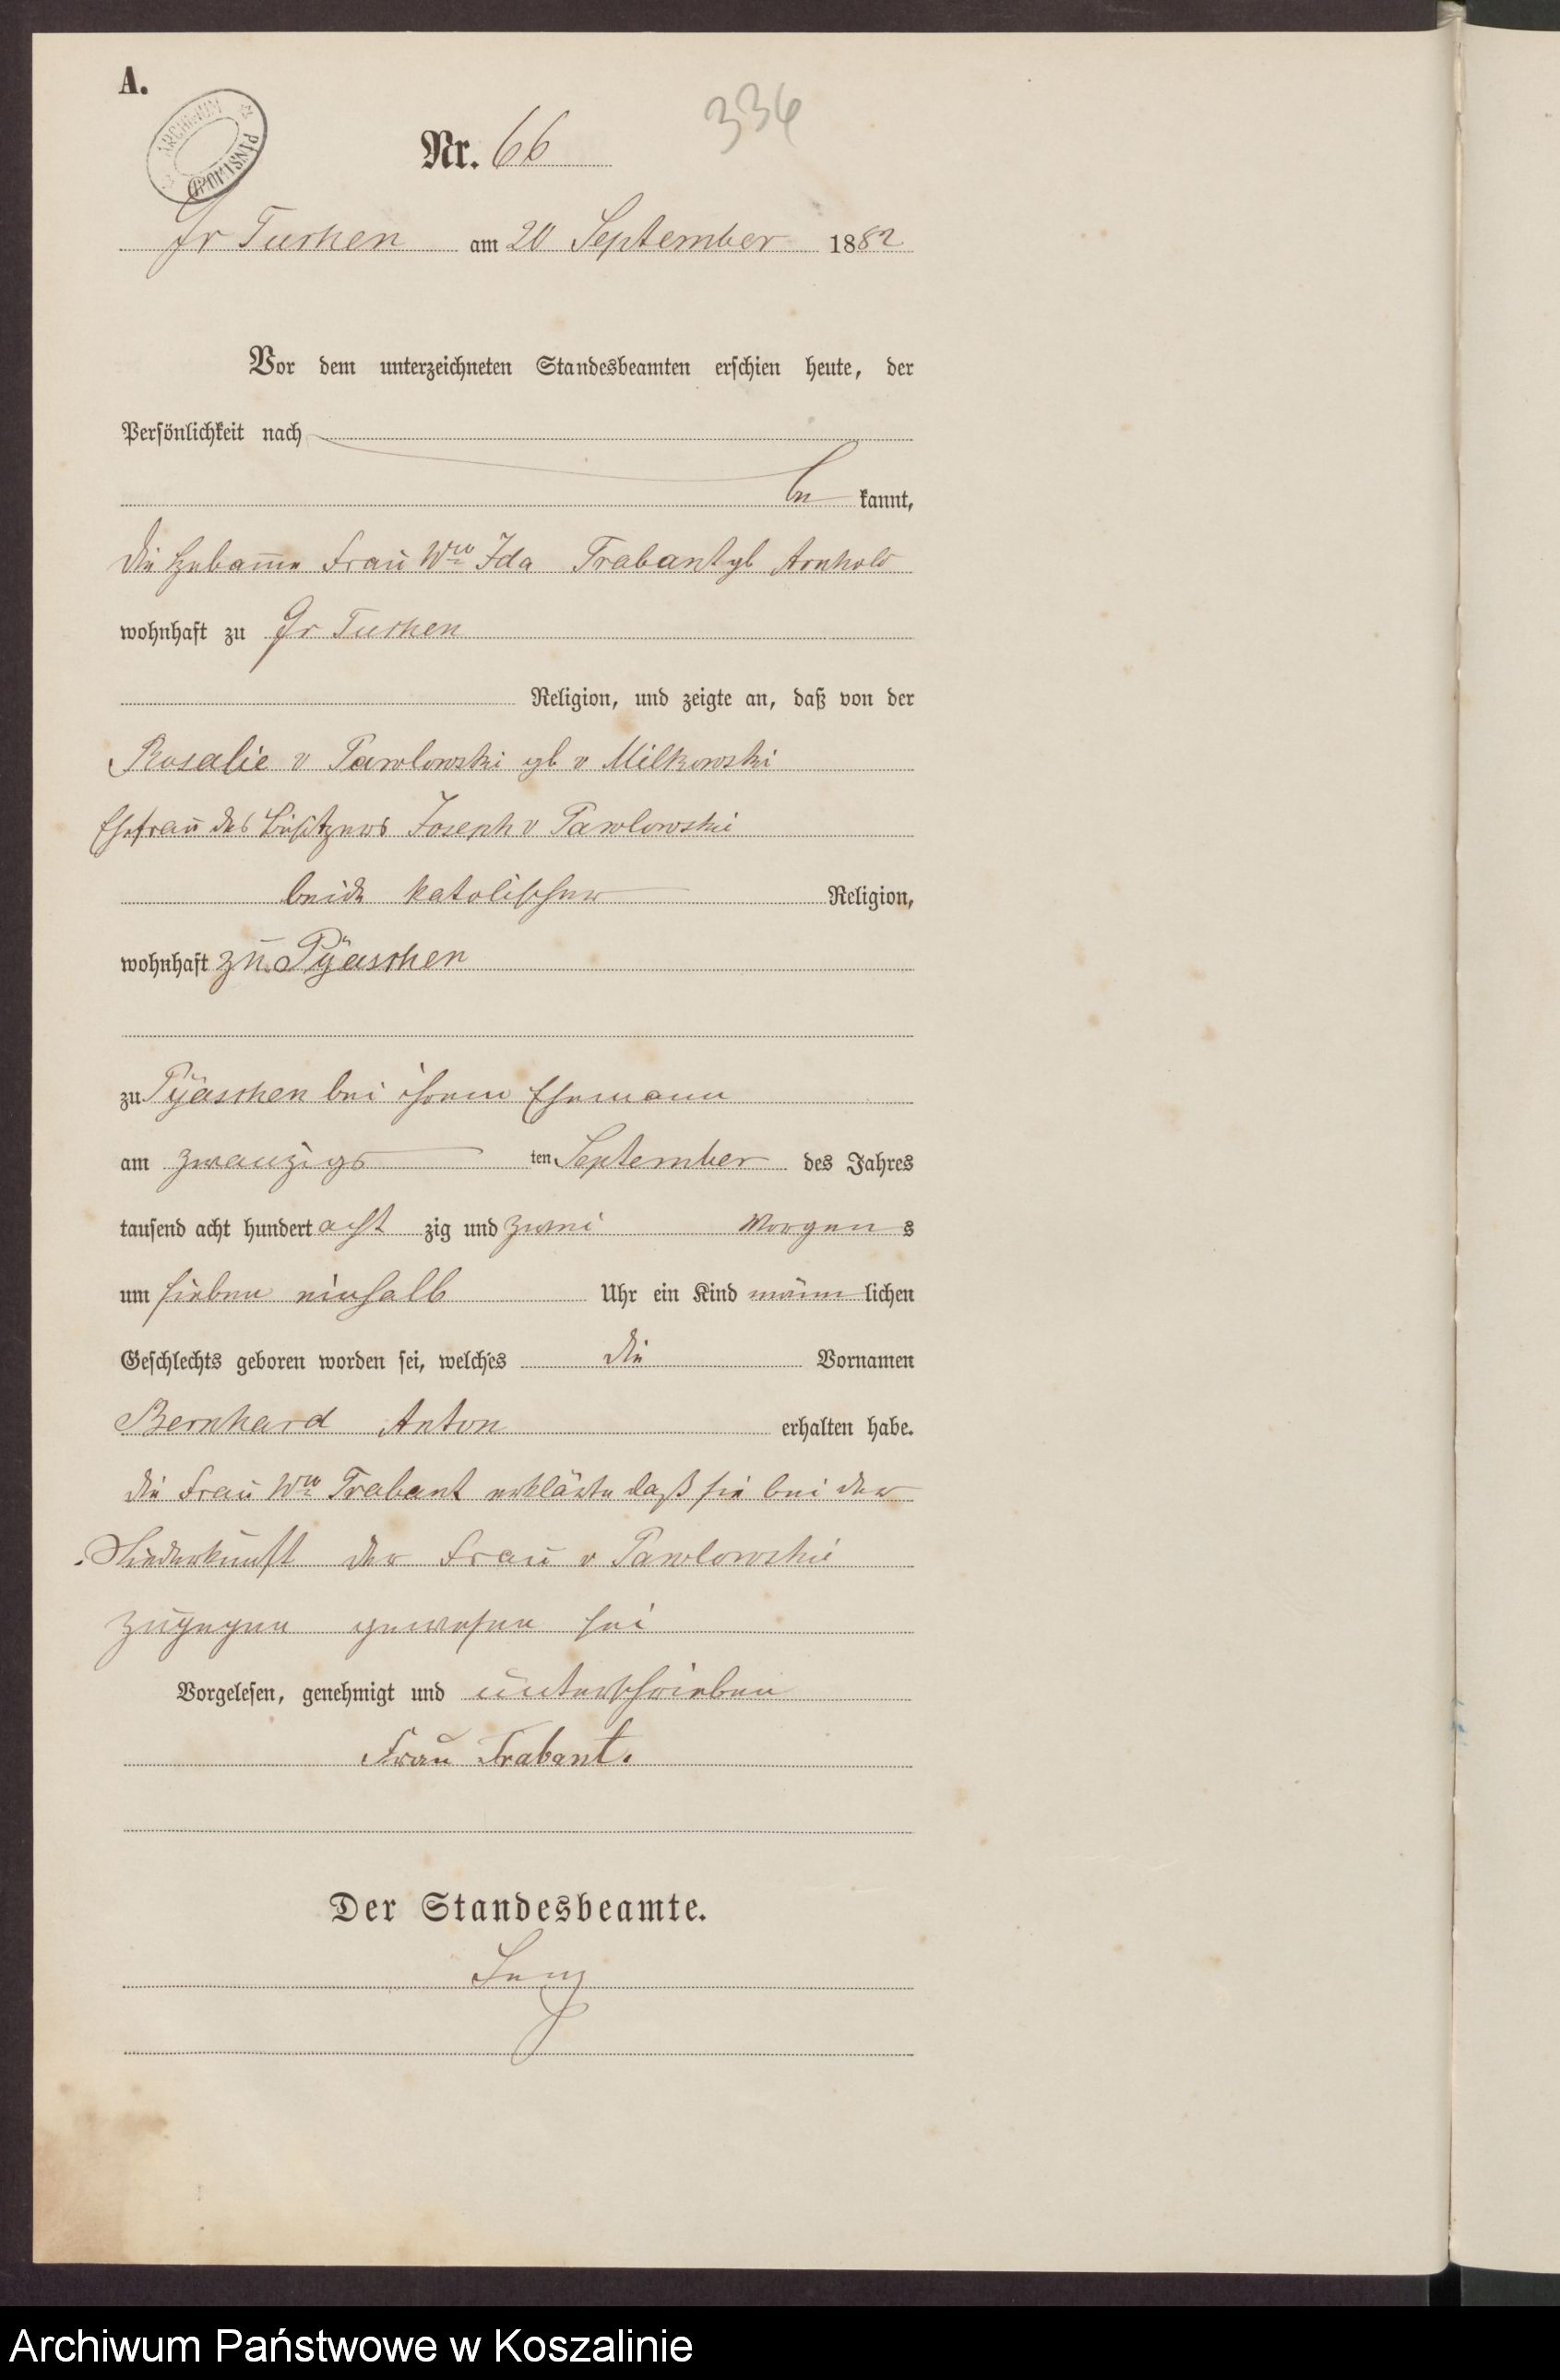 A.
ARCHIWUM PAŃSTWOWE
334
Nr. 66
Gr Tuchen am 20 September 1882
Vor dem unterzeichneten Standesbeamten erschien heute, der
Persönlichkeit nach
be kannt,
die Hebamme Frau Wwe Ida Trabant gb Arnhold
wohnhaft zu Gr Tuchen
Religion, und zeigte an, daß von der
Rosalie v Pawlowski gb v Milkowski
Ehefrau des Besitzers Joseph v Pawlowski
beide katolischer Religion,
wohnhaft zu Pÿaschen
zu Pÿaschen bei ihrem Ehemann
am zwanzigs ten September des Jahres
tausend acht hundert acht zig und zwei Morgen s
um sieben einhalb Uhr ein Kind männ lichen
Geschlechts geboren worden sei, welches die Vornamen
Bernhard Anton erhalten habe.
die Frau Wwe Trabant erklärte daß sie bei der
Niederkunft der Frau v Pawlowski
zugegen gewesen sei
Vorgelesen, genehmigt und unterschrieben
Frau Trabant.
Der Standesbeamte.
Archiwum Państwowe w Koszalinie